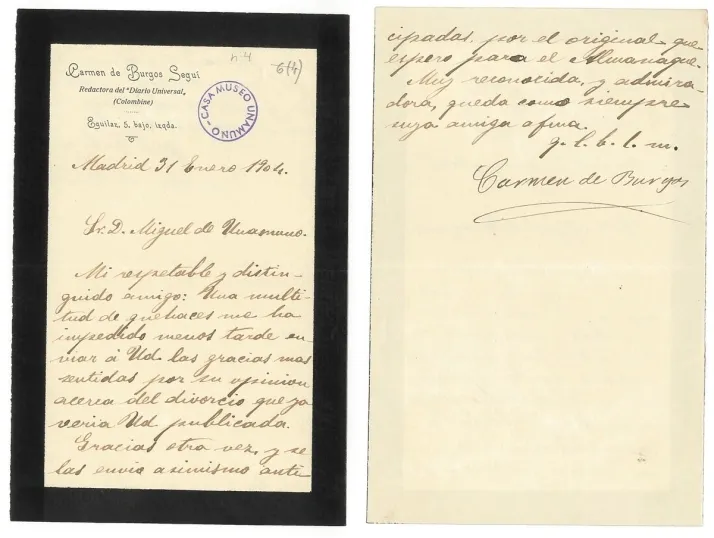 h-4
6(4)
Carmen de Burgos Seguí
Redactora del "Diario Universal„
(Colombine)
Eguilaz, 5, bajo, izqda.
CASA MUSEO UNAMUNO
Madrid 31 Enero 1904.
Sr. D. Miguel de Unamuno.
Mi respetable y distin-
guido amigo: Una multi-
tud de quehaces me ha
impedido menos tarde en-
viar á Ud las gracias mas
sentidas por su opinion
acerca del divorcio que ya
veria Ud publicada.
Gracias otra vez, y se
las envio asimismo anti-
cipadas, por el original que
espero para el Almanaque.
Muy reconocida, y admira-
dora, queda como siempre
suya amiga afma.
q. l. b. l. m.
Carmen de Burgos